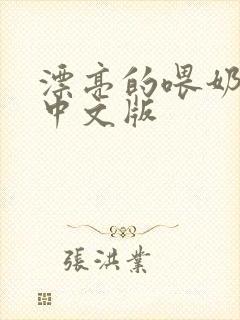 漂亮的喂奶
中文版
張洪業